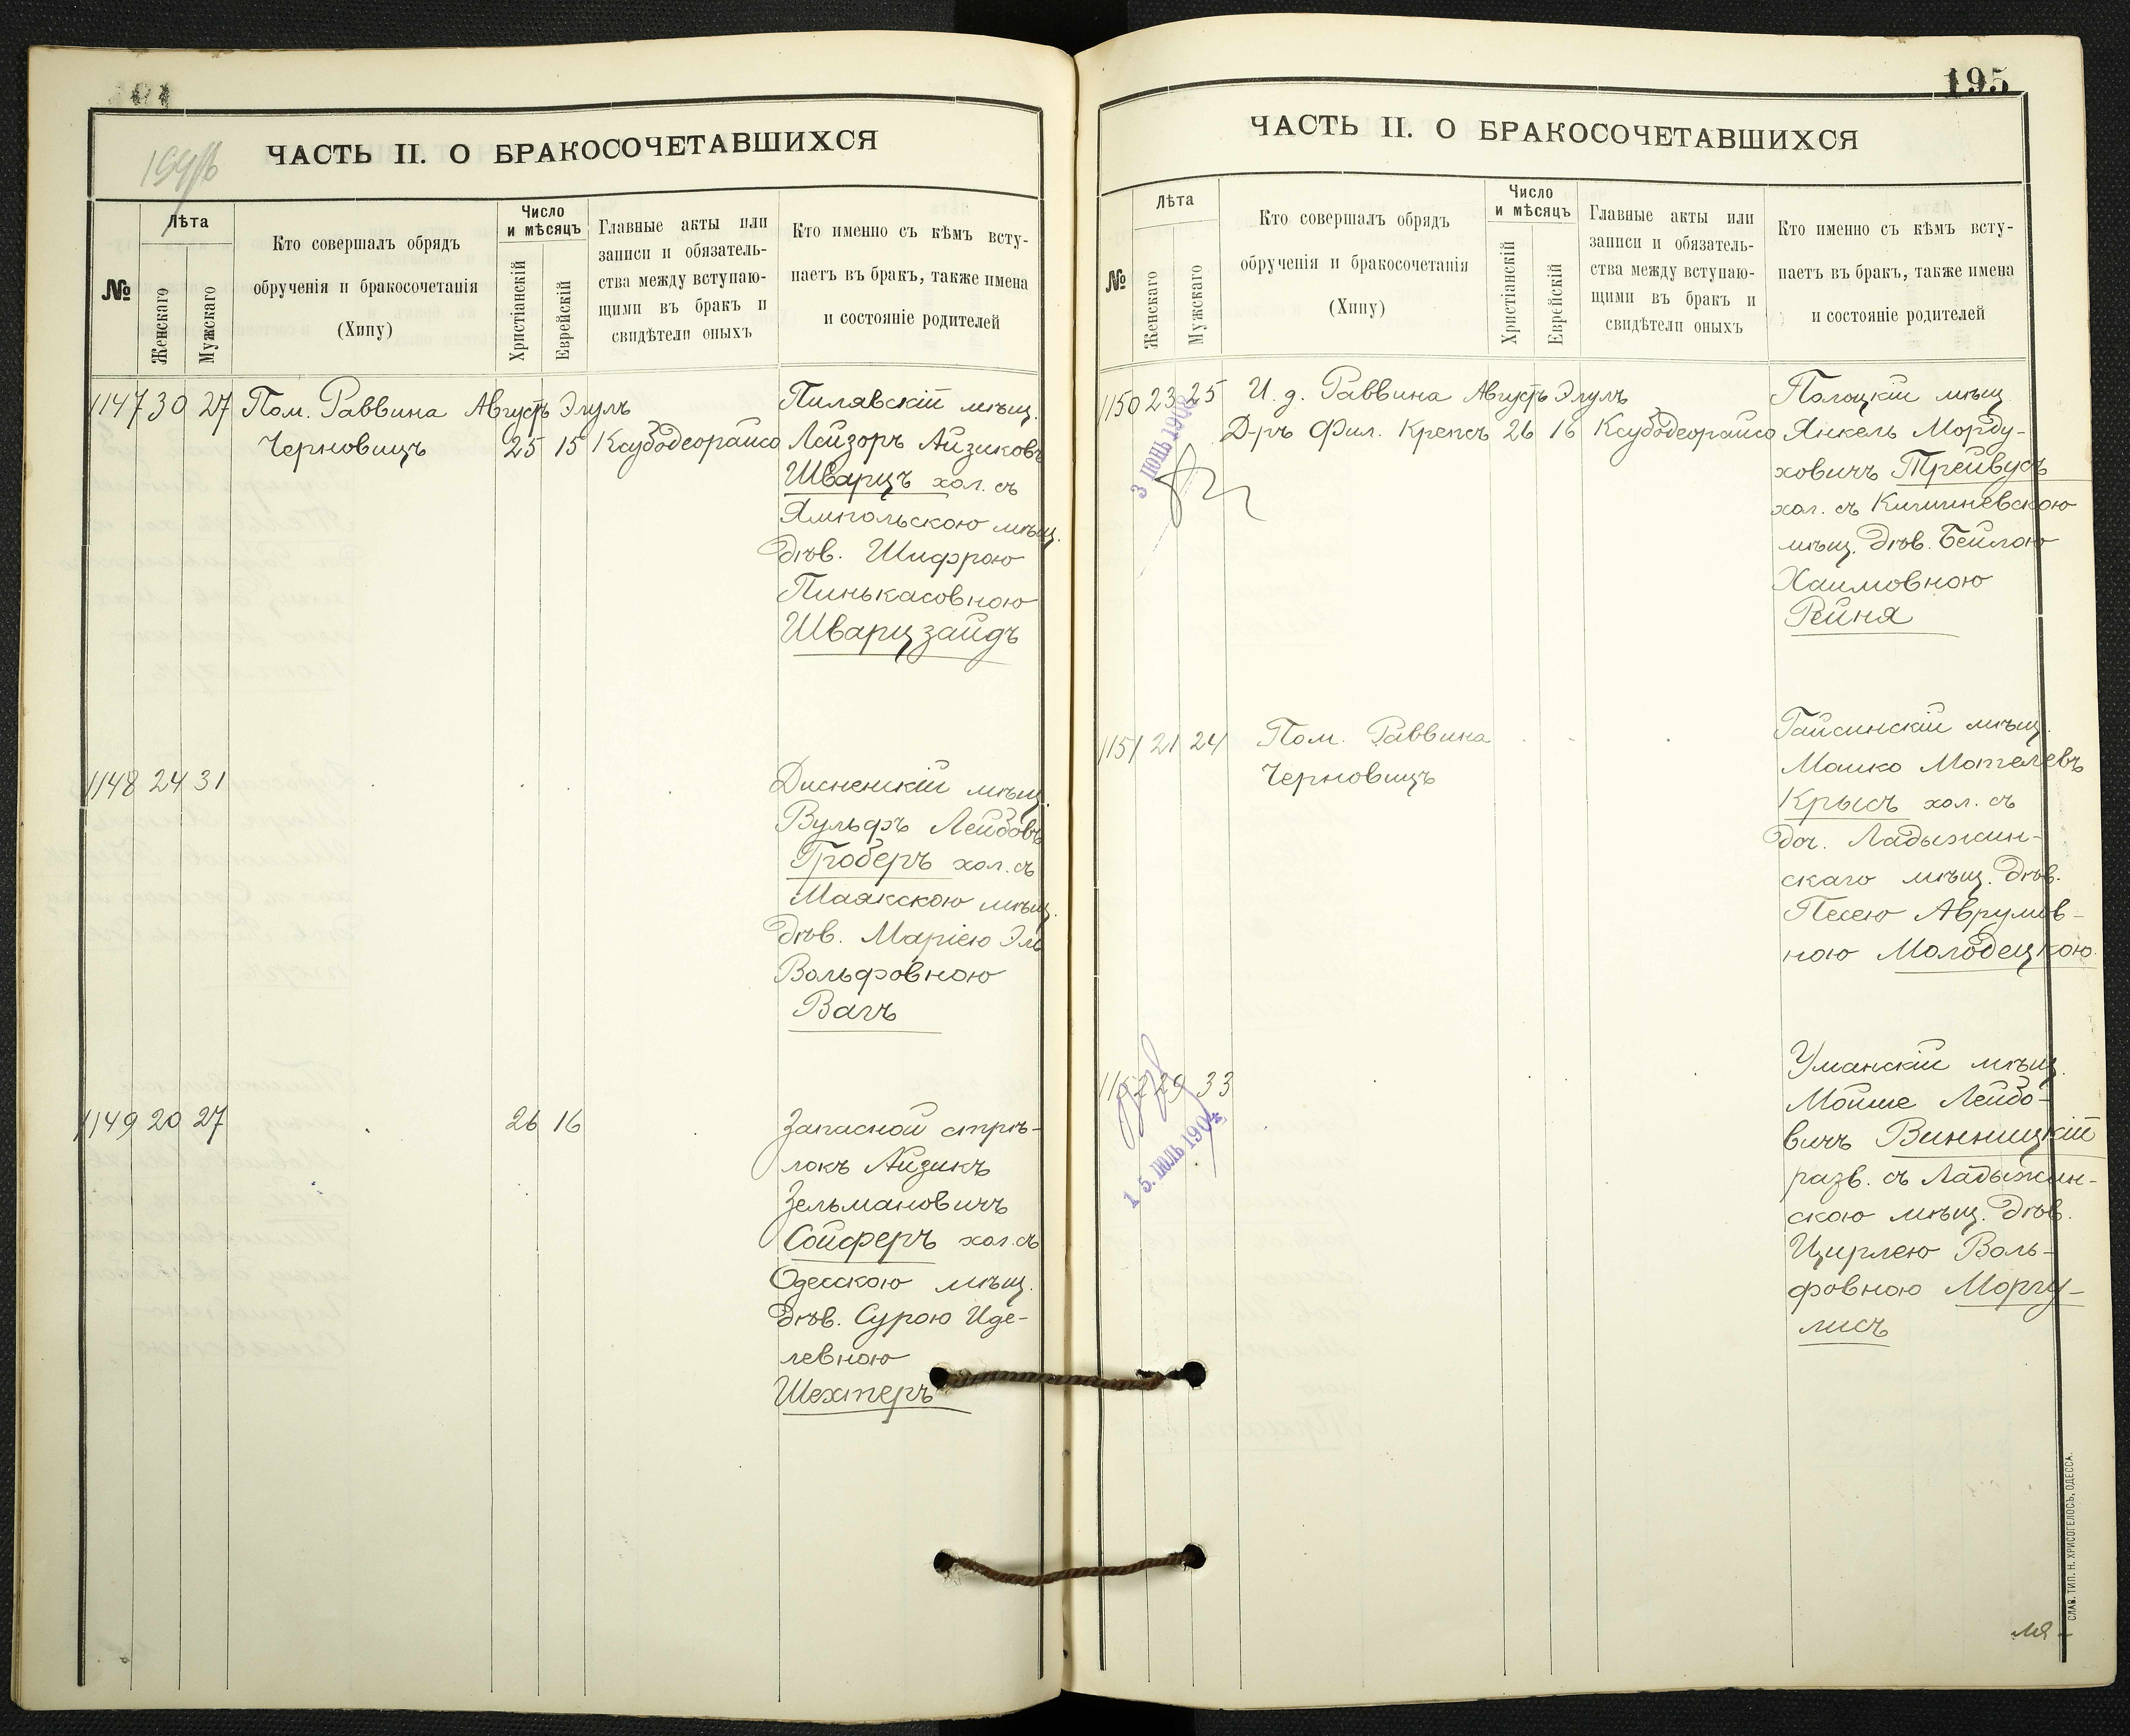 ЧАСТЬ II. О БРАКОСОЧЕТАВШИХСЯ
№
Лѣта
Женскаго
Мужскаго
Кто совершалъ обрядъ
обрученія и бракосочетанія
(Хипу)
Число
и мѣсяцъ
Христіанскій
Еврейскій
Главные акты или
записи и обязатель-
ства между вступаю-
щими въ бракъ и
свидѣтели оныхъ
Кто именно съ кѣмъ всту-
паетъ въ бракъ, также имена
и состояніе родителей
1147 30 27 Пом. Раввина Августъ Элулъ
Черновицъ 25 15 Ксубодеорайсо
Пилявскій мѣщ.
Лейзоръ Айзиковъ
Шварцъ хол. съ
Ямпольскою мѣщ.
дѣв. Шифрою
Пинькасовною
Шварцзайдъ
1148 24 31
Дисненскій мѣщ.
Вульфъ Лейбовъ
Гроберъ хол. съ
Маякскою мѣщ.
дѣв. Маріею Эль
Вольфовною
Вагъ
1149 20 27 26 16
Запасной стрѣ-
локъ Айзикъ
Зельмановичъ
Сойферъ хол. съ
Одесскою мѣщ.
дѣв. Сурою Иде-
левною
Шехтеръ
195
ЧАСТЬ II. О БРАКОСОЧЕТАВШИХСЯ
№
Лѣта
Женскаго
Мужскаго
Кто совершалъ обрядъ
обрученія и бракосочетанія
(Хипу)
Число
и мѣсяцъ
Христіанскій
Еврейскій
Главные акты или
записи и обязатель-
ства между вступаю-
щими въ бракъ и
свидѣтели оныхъ
Кто именно съ кѣмъ всту-
паетъ въ бракъ, также имена
и состояніе родителей
1150 23 25 И. д. Раввина Августъ Элулъ
Д-ръ Фил. Крепсъ 26 16 Ксубодеорайсо
Полоцкій мѣщ.
Янкель Морду-
ховичъ Трейвусъ
хол. съ Кишиневскою
мѣщ. дѣв. Бейлою
Хаимовною
Рейня
1151 21 24 Пом. Раввина
Черновицъ
Гайсинскій мѣщ.
Мошко Мотелевъ
Крысъ хол. съ
доч. Ладыжин-
скаго мѣщ. дѣв.
Песею Аврумов-
ною Молодецкою.
1152 29 33
15. ІЮЛЬ 1904
Уманскій мѣщ.
Мойше Лейбо-
вичъ Винницкій
разв. съ Ладыжин-
скою мѣщ. дѣв.
Цирлею Воль-
фовною Моргу-
лисъ
СЛАВ. ТИП. Н. ХРИСОГЕЛОСЪ, ОДЕССА.